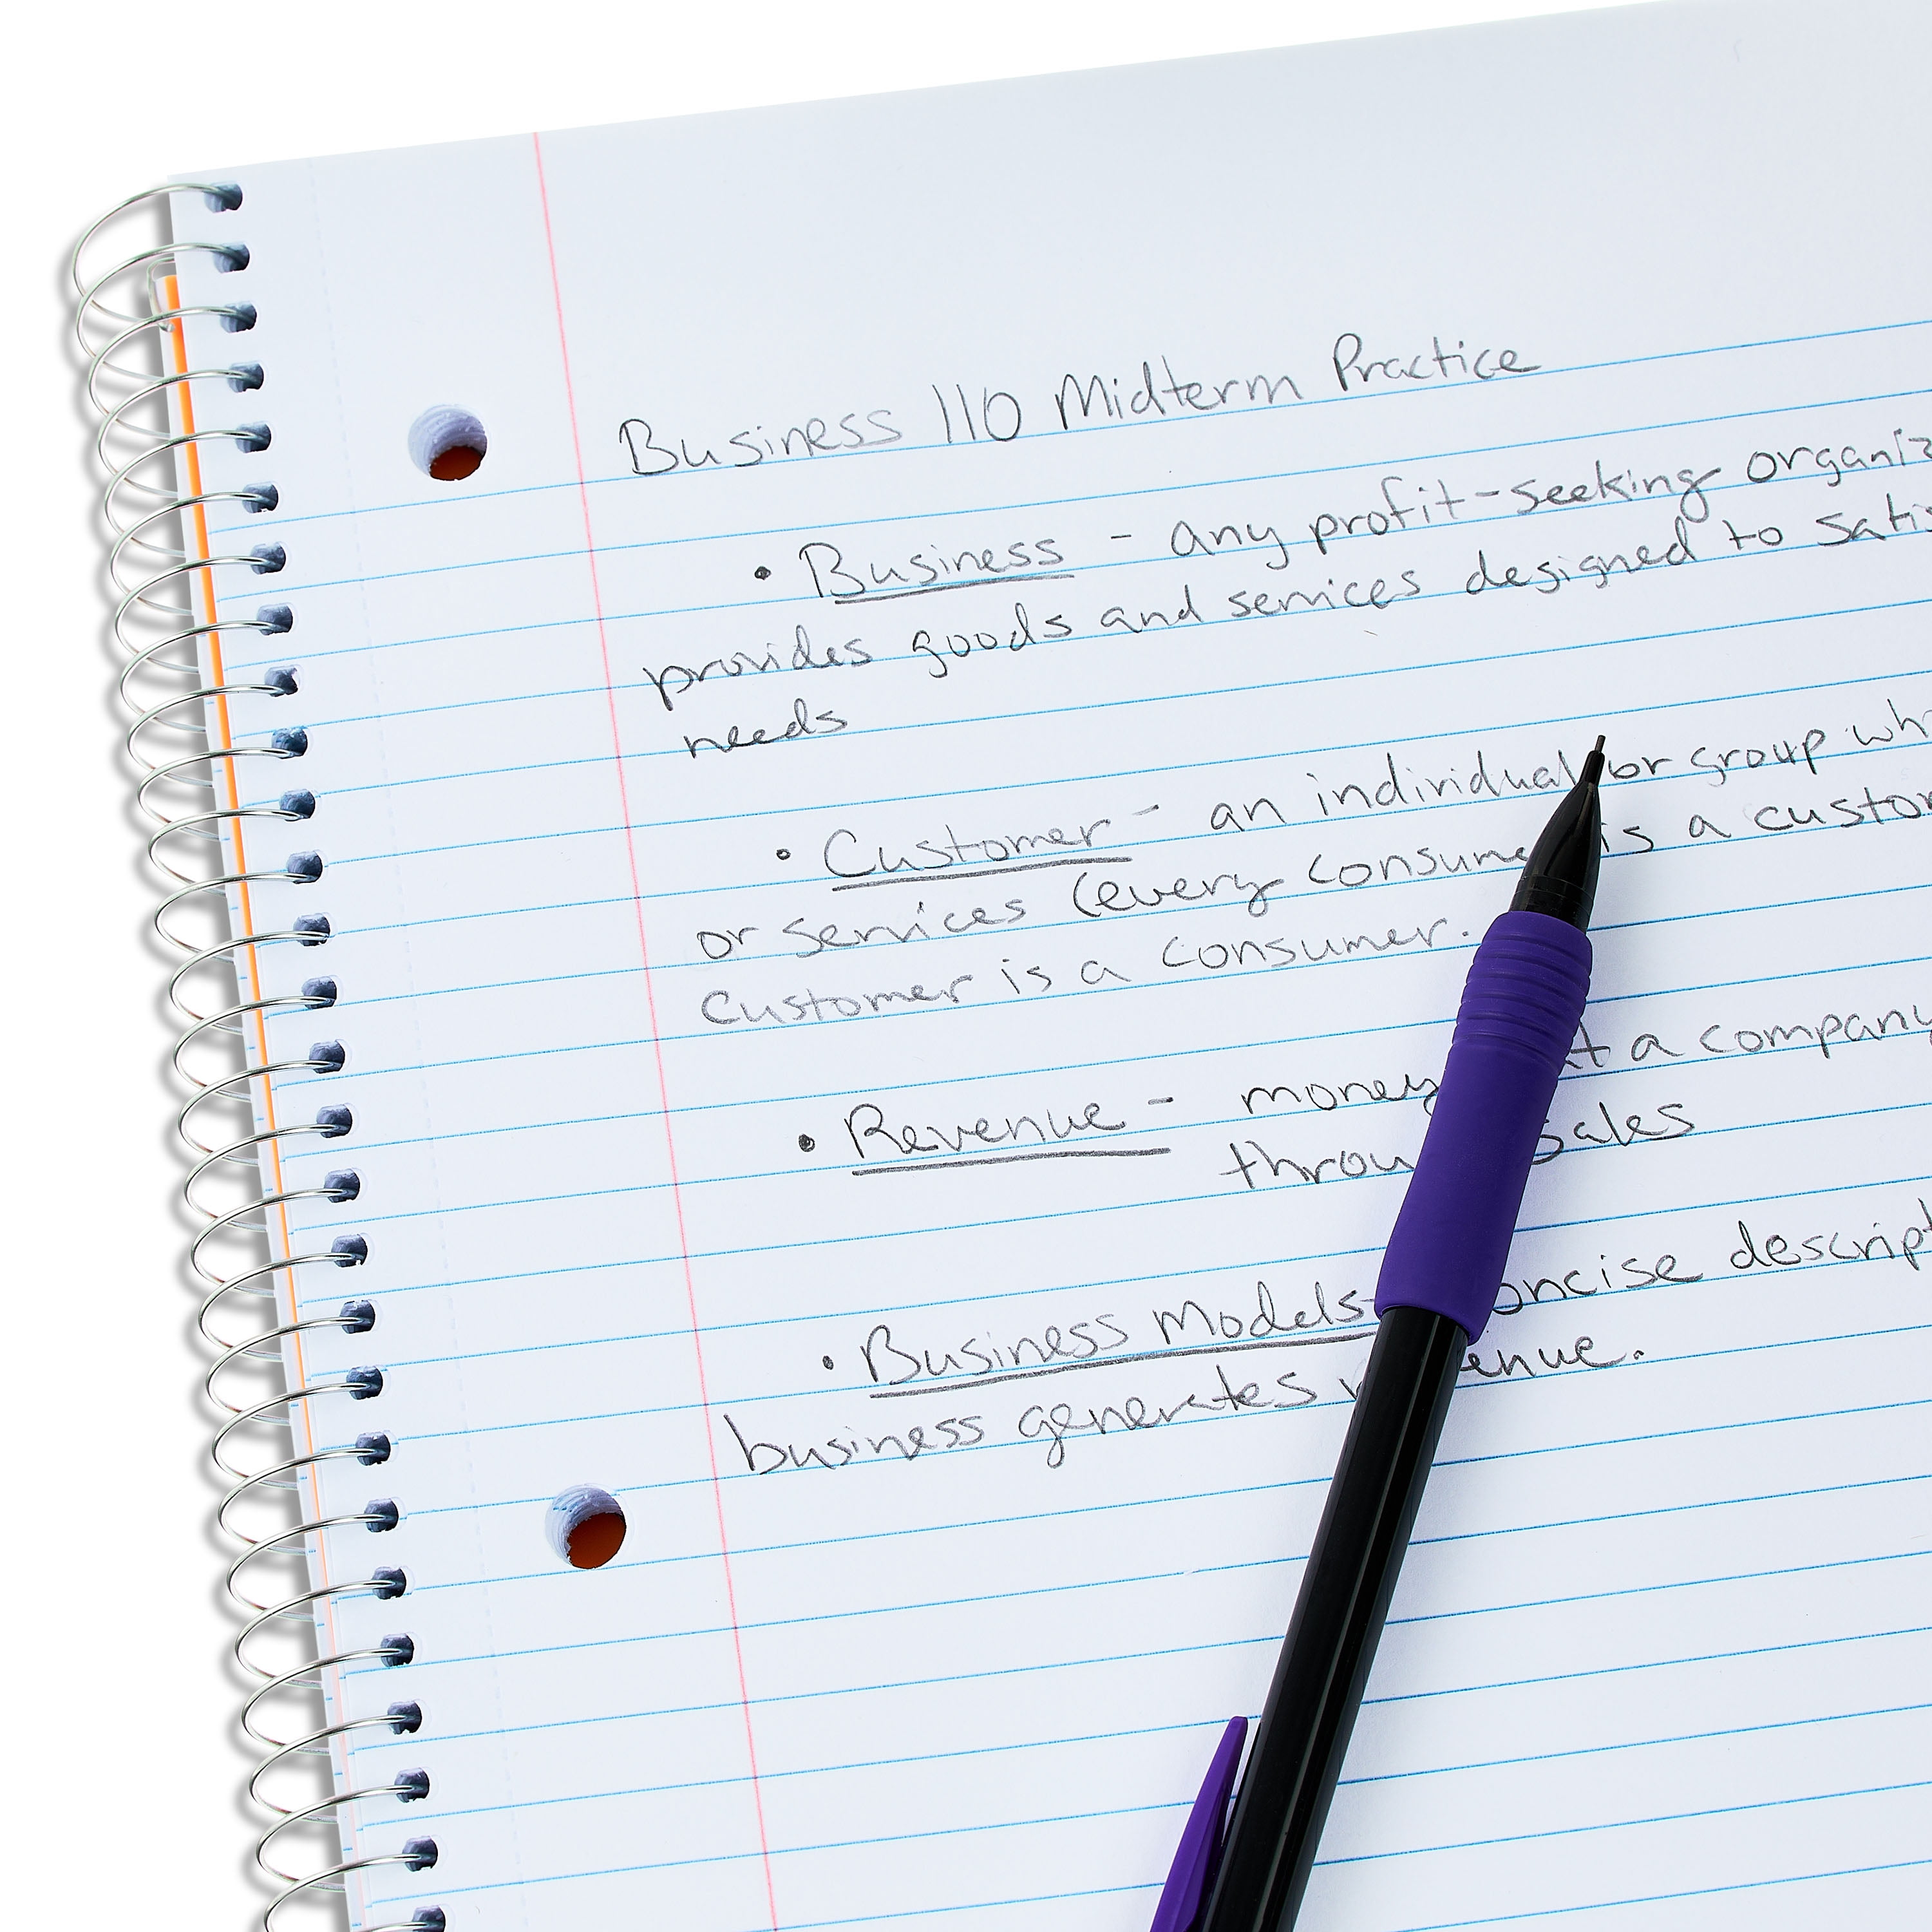 Business 110 Midterm Practice
• Business - any profit-seeking organiz
provides goods and services designed to satis
needs
• Customer - an individual or group wh
or services (every consume is a custom
Customer is a consumer.
• Revenue - money t a company
throu sales
• Business Models- oncise descript
business generates enue.